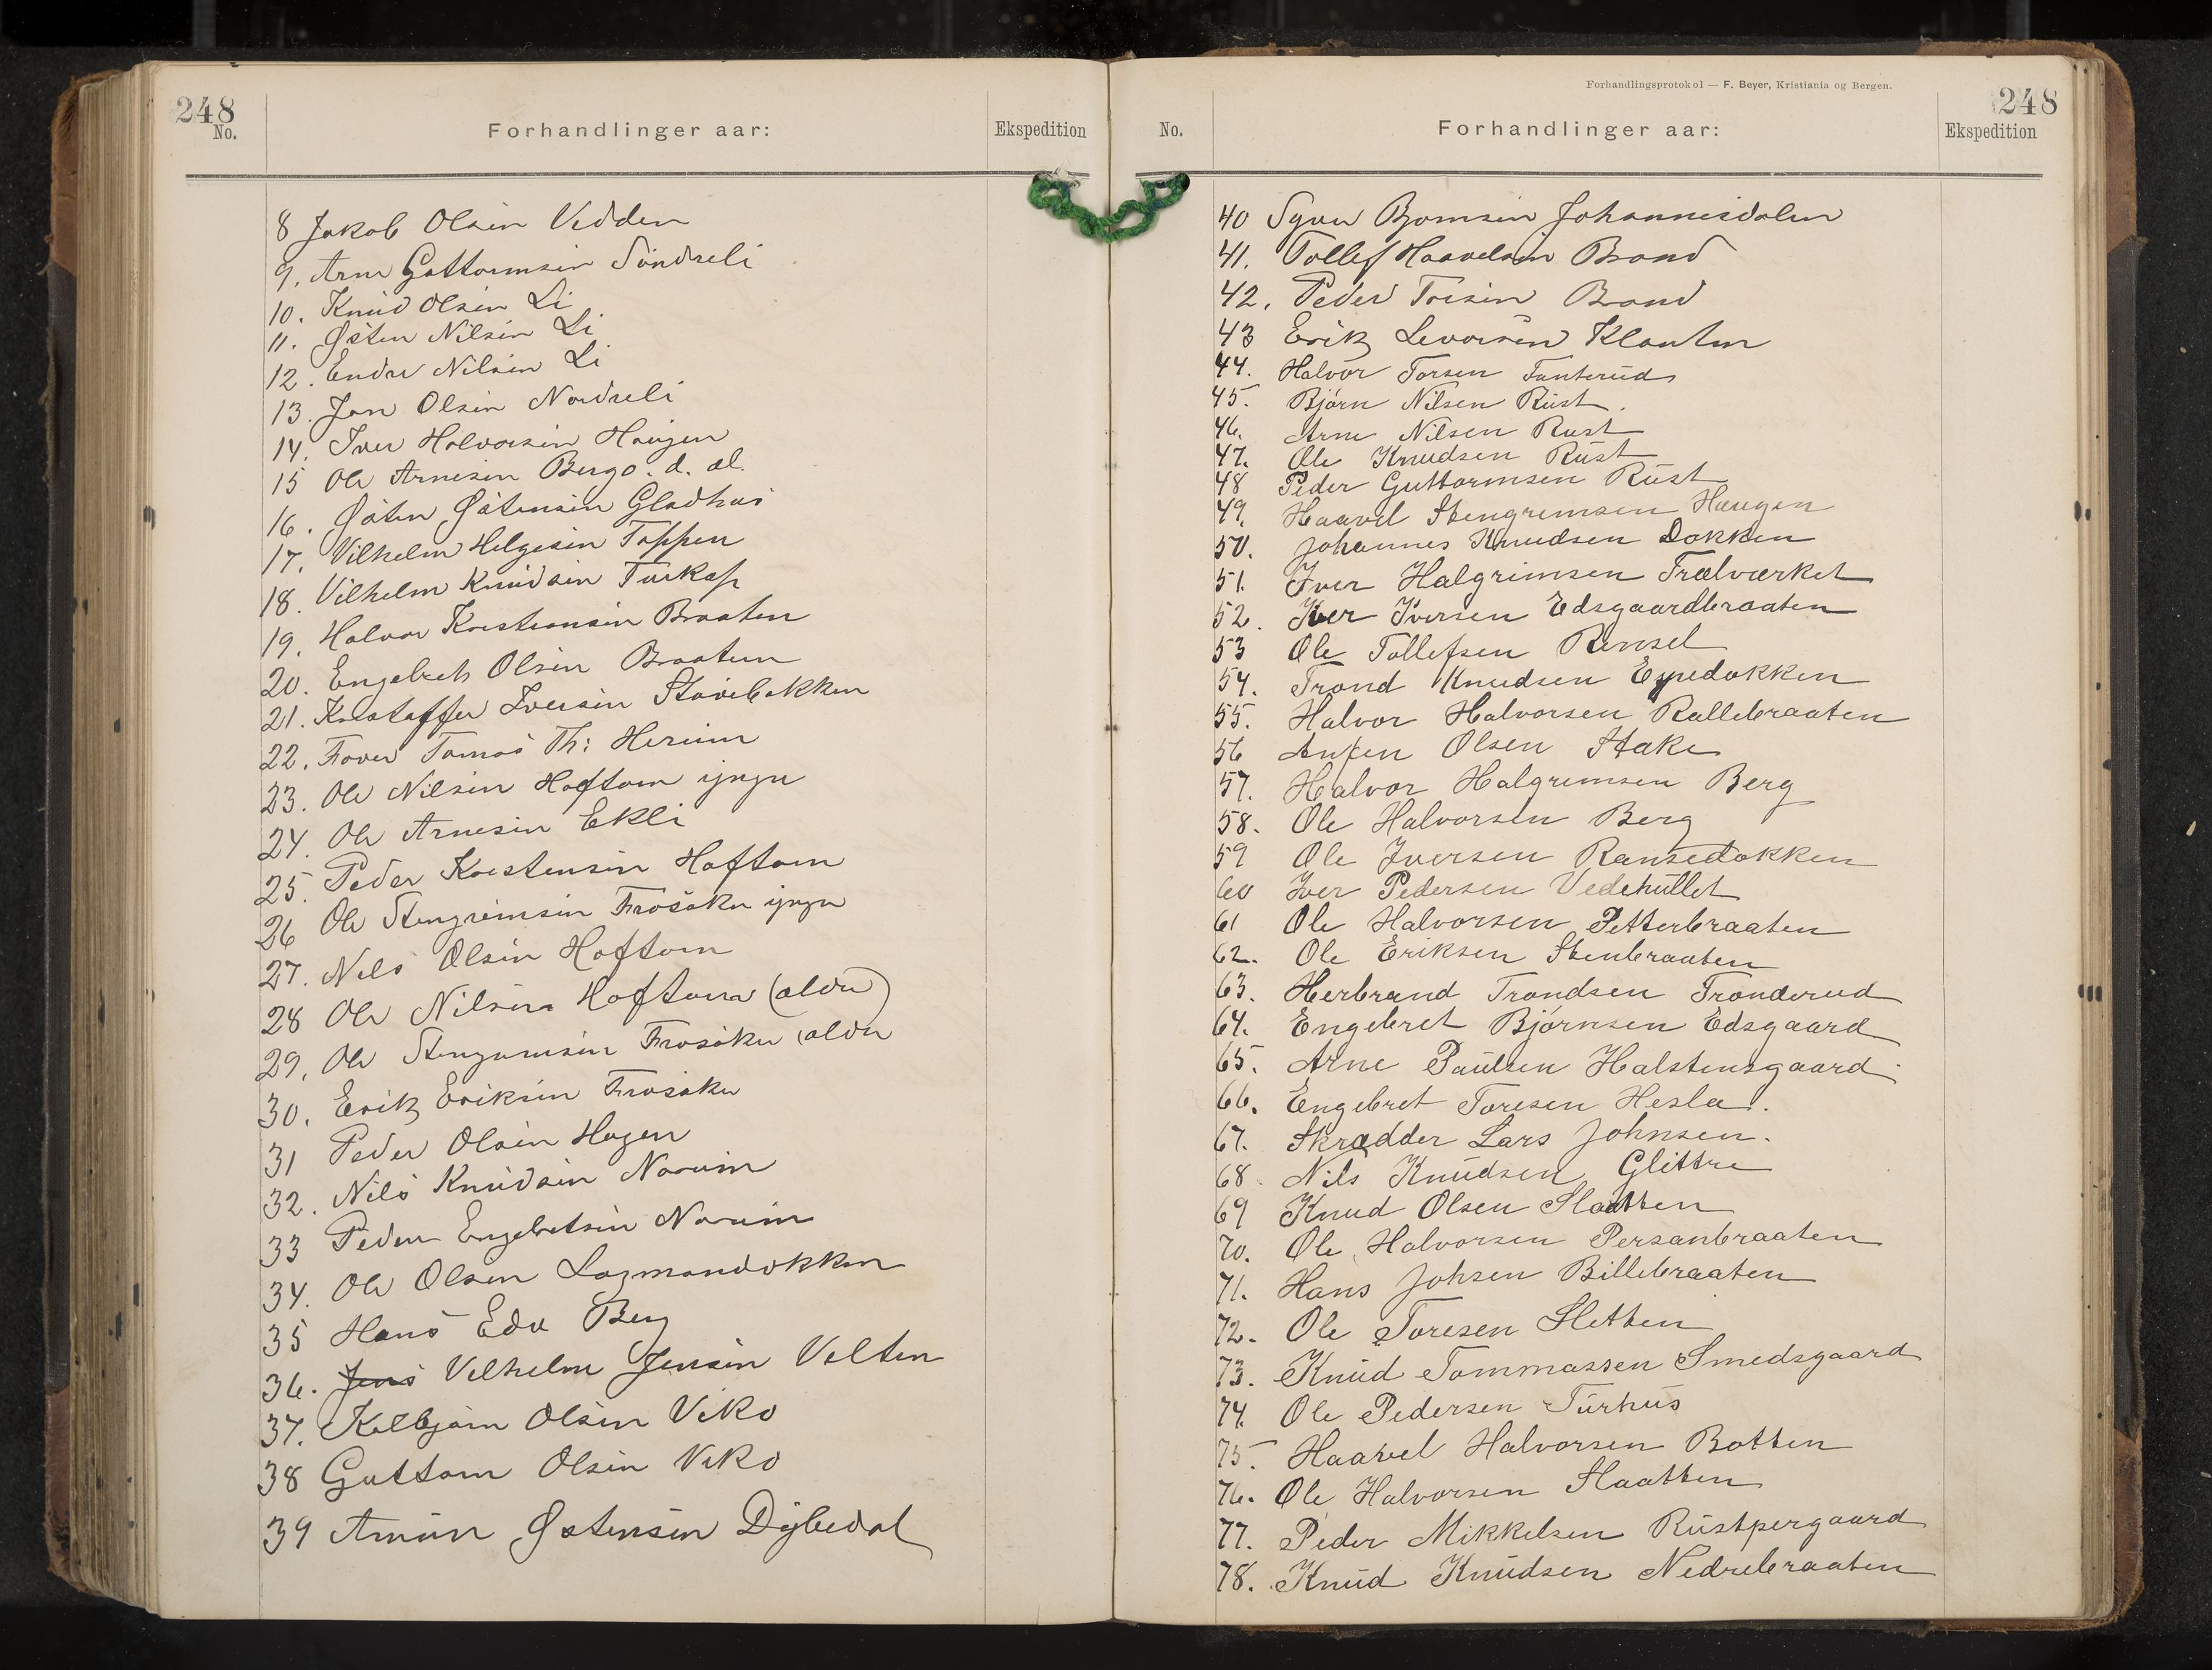 248
No.
Forhandlinger aar:
Ekspedition
8 Jakob Olsen Vedden
9. Arne Guttormsen Söndreli
10. Knud Olsen Li
11. Østen Nilsen Li
12. Endre Nilsen Li
13. Jon Olsen Nordreli
14. Iver Halvorsen Haugen
15 Ole Arnesen Bergo. d. æl.
16. Østen Østensen Gladhus
17. Vilhelm Helgesen Toppen
18. Vilhelm Knudsen
19. Halvor Kristiansen Braaten
20. Engebreth Olsen Braaten
21. Kristoffer Iversen Stavebakken
22. Tomas Th:
23. Ole Nilsen Hoftun yngre
24. Ole Arnesen Ekli
25. Peder Kristensen Hoftun
26 Ole Stengrimsen Frøsaker yngre
27. Nils Olsen Hoftun
28 Ole Nilsen Hoftun (aldre)
29. Ole Stengrimsen Frøsaker (aldre
30. Erik Eriksen Frøsaker
31 Peder Olsen Hagen
32. Nils Knudsen Norum
33 Peder Engebretsen Norum
34. Ole Olsen Lagmandokken
35 Hans Edv Berg
36. Jens Vilhelm Jensen Velten
37. Kolbjørn Olsen Viko
38 Guttorm Olsen Viko
39 Amun Østensen Dybedal
Forhandlingsprotokol — F. Beyer, Kristiania og Bergen.
248
No.
Forhandlinger aar:
Ekspedition
40 Syver Johannesdalen
41. Tollef Haavelsen Brand
42. Peder Toresen Brand
43 Erik Levorsen Klanten
44. Halvor Torsen Fanterud
45. Bjørn Nilsen Rust.
46. Arne Nilsen Rust
47. Ole Knudsen Rust
48 Peder Guttormsen Rust
49. Haavel Stengrimsen Haugen
50. Johannes Knudsen Dokken
51. Iver Halgrimsen Trælverket
52. Iver Iversen Edsgaardbraaten
53 Ole Tollefsen Rensel
54. Trond Knudsen
55. Halvor Halvorsen Rallebraaten
56 Anfen Olsen Stake
57. Halvor Halgrimsen Berg
58. Ole Halvorsen Berg
59 Ole Iversen Ransedokken
60 Iver Pedersen Vedehullet
61 Ole Halvorsen Petterbraaten
62. Ole Eriksen Stenbraaten
63. Herbrand Trondsen Tronderud
64. Engebret Bjørnsen Edsgaard
65. Arne Paulsen Halstensgaard
66. Engebret Toresen Hesla.
67. Skrædder Lars Johnsen.
68. Nils Knudsen Glittre
69 Knud Olsen Slaatten
70. Ole Halvorsen Persanbraaten
71. Hans Johsen Billebraaten
72. Ole Toresen Sletten
73. Knud Tommassen Smedsgaard
74. Ole Pedersen Turhus
75. Haavel Halvorsen Botten
76. Ole Halvorsen Slaatten
77. Peder Mikkelsen Rustpergaard
78. Knud Knudsen Nedrebraaten